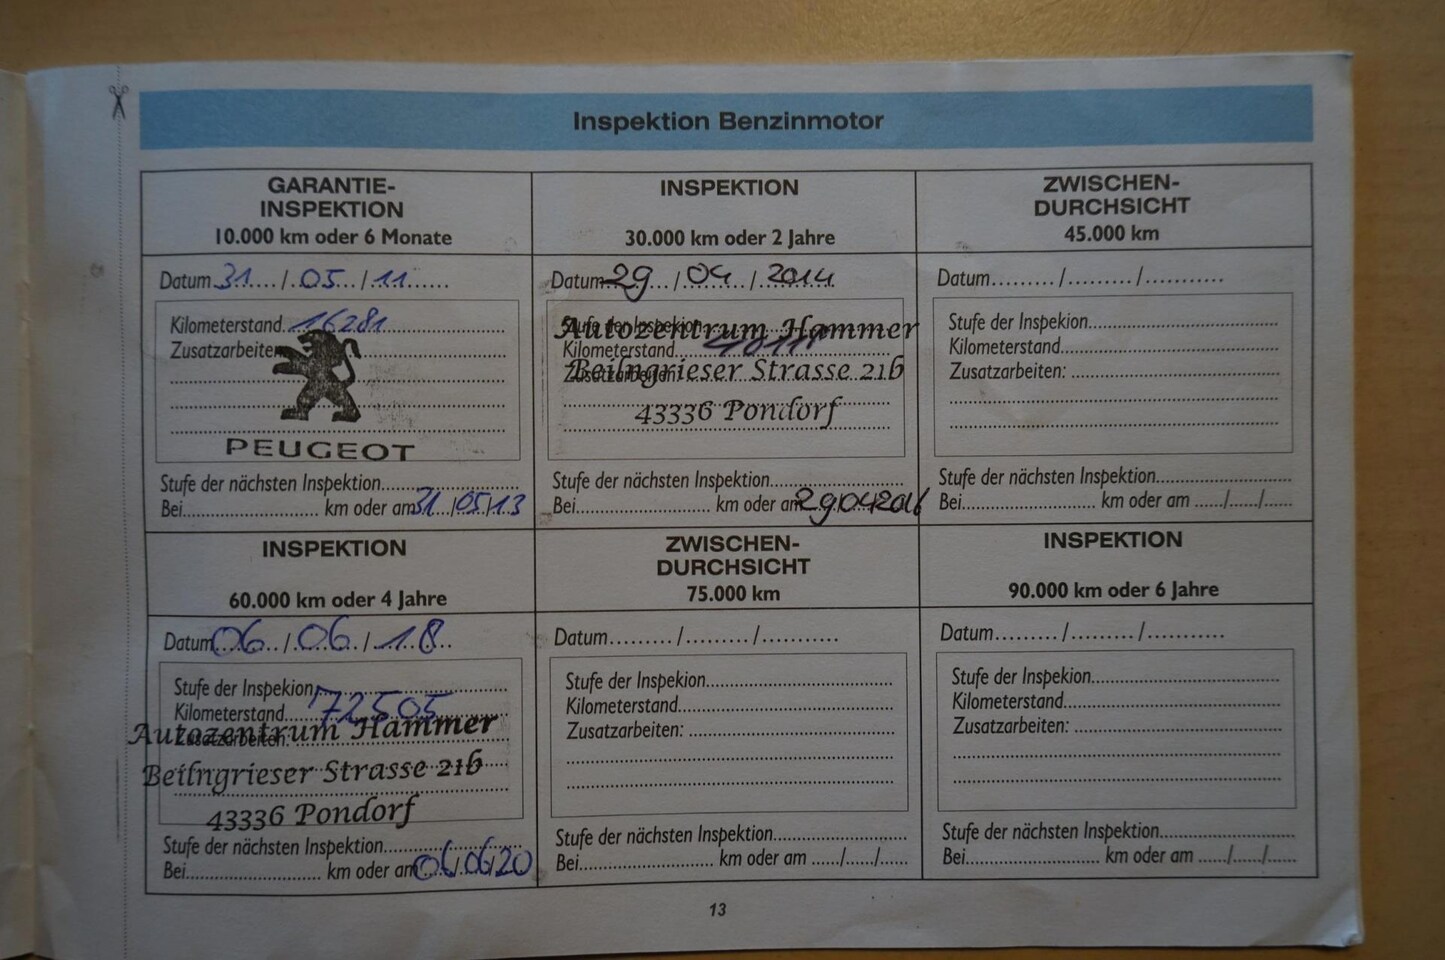 Inspektion Benzinmotor
GARANTIE-
INSPEKTION
10.000 km oder 6 Monate
Datum 31 / 05 / 11
Kilometerstand 16281
Zusatzarbeiten
PEUGEOT
Stufe der nächsten Inspektion
Bei km oder am 31/05/13
INSPEKTION
30.000 km oder 2 Jahre
Datum 29 / 04 / 2014
Stufe der Inspekion
Autozentrum Hammer
Kilometerstand
Beilngrieser Strasse 21b
Zusatzarbeiten:
43336 Pondorf
Stufe der nächsten Inspektion
Bei km oder am 29042016
ZWISCHEN-
DURCHSICHT
45.000 km
Datum / /
Stufe der Inspekion
Kilometerstand
Zusatzarbeiten:
Stufe der nächsten Inspektion
Bei km oder am / /
INSPEKTION
60.000 km oder 4 Jahre
Datum 06 / 06 / 18
Stufe der Inspekion
Kilometerstand 72505
Autozentrum Hammer
Zusatzarbeiten:
Beilngrieser Strasse 21b
43336 Pondorf
Stufe der nächsten Inspektion
Bei km oder am 06/06/20
ZWISCHEN-
DURCHSICHT
75.000 km
Datum / /
Stufe der Inspekion
Kilometerstand
Zusatzarbeiten:
Stufe der nächsten Inspektion
Bei km oder am / /
INSPEKTION
90.000 km oder 6 Jahre
Datum / /
Stufe der Inspekion
Kilometerstand
Zusatzarbeiten:
Stufe der nächsten Inspektion
Bei km oder am / /
13